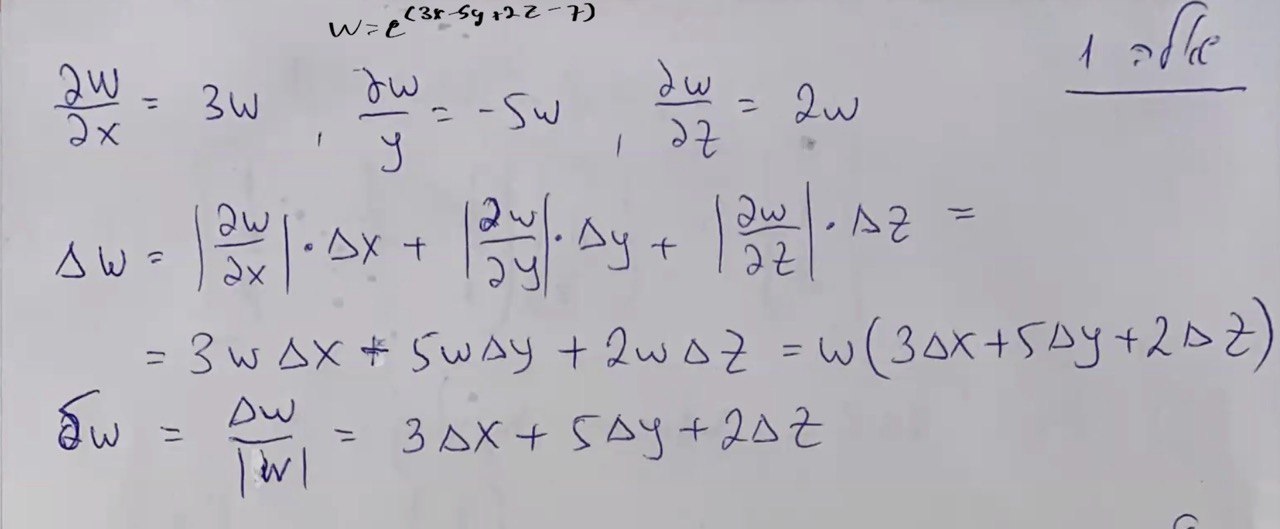 w=e^(3x-5y+2z-7)
∂w/∂x = 3w , ∂w/y = -5w , ∂w/∂z = 2w
Δw = |∂w/∂x|·Δx + |∂w/∂y|·Δy + |∂w/∂z|·Δz =
= 3wΔx + 5wΔy + 2wΔz = w(3Δx+5Δy+2Δz)
δw = Δw/|w| = 3Δx + 5Δy + 2Δz